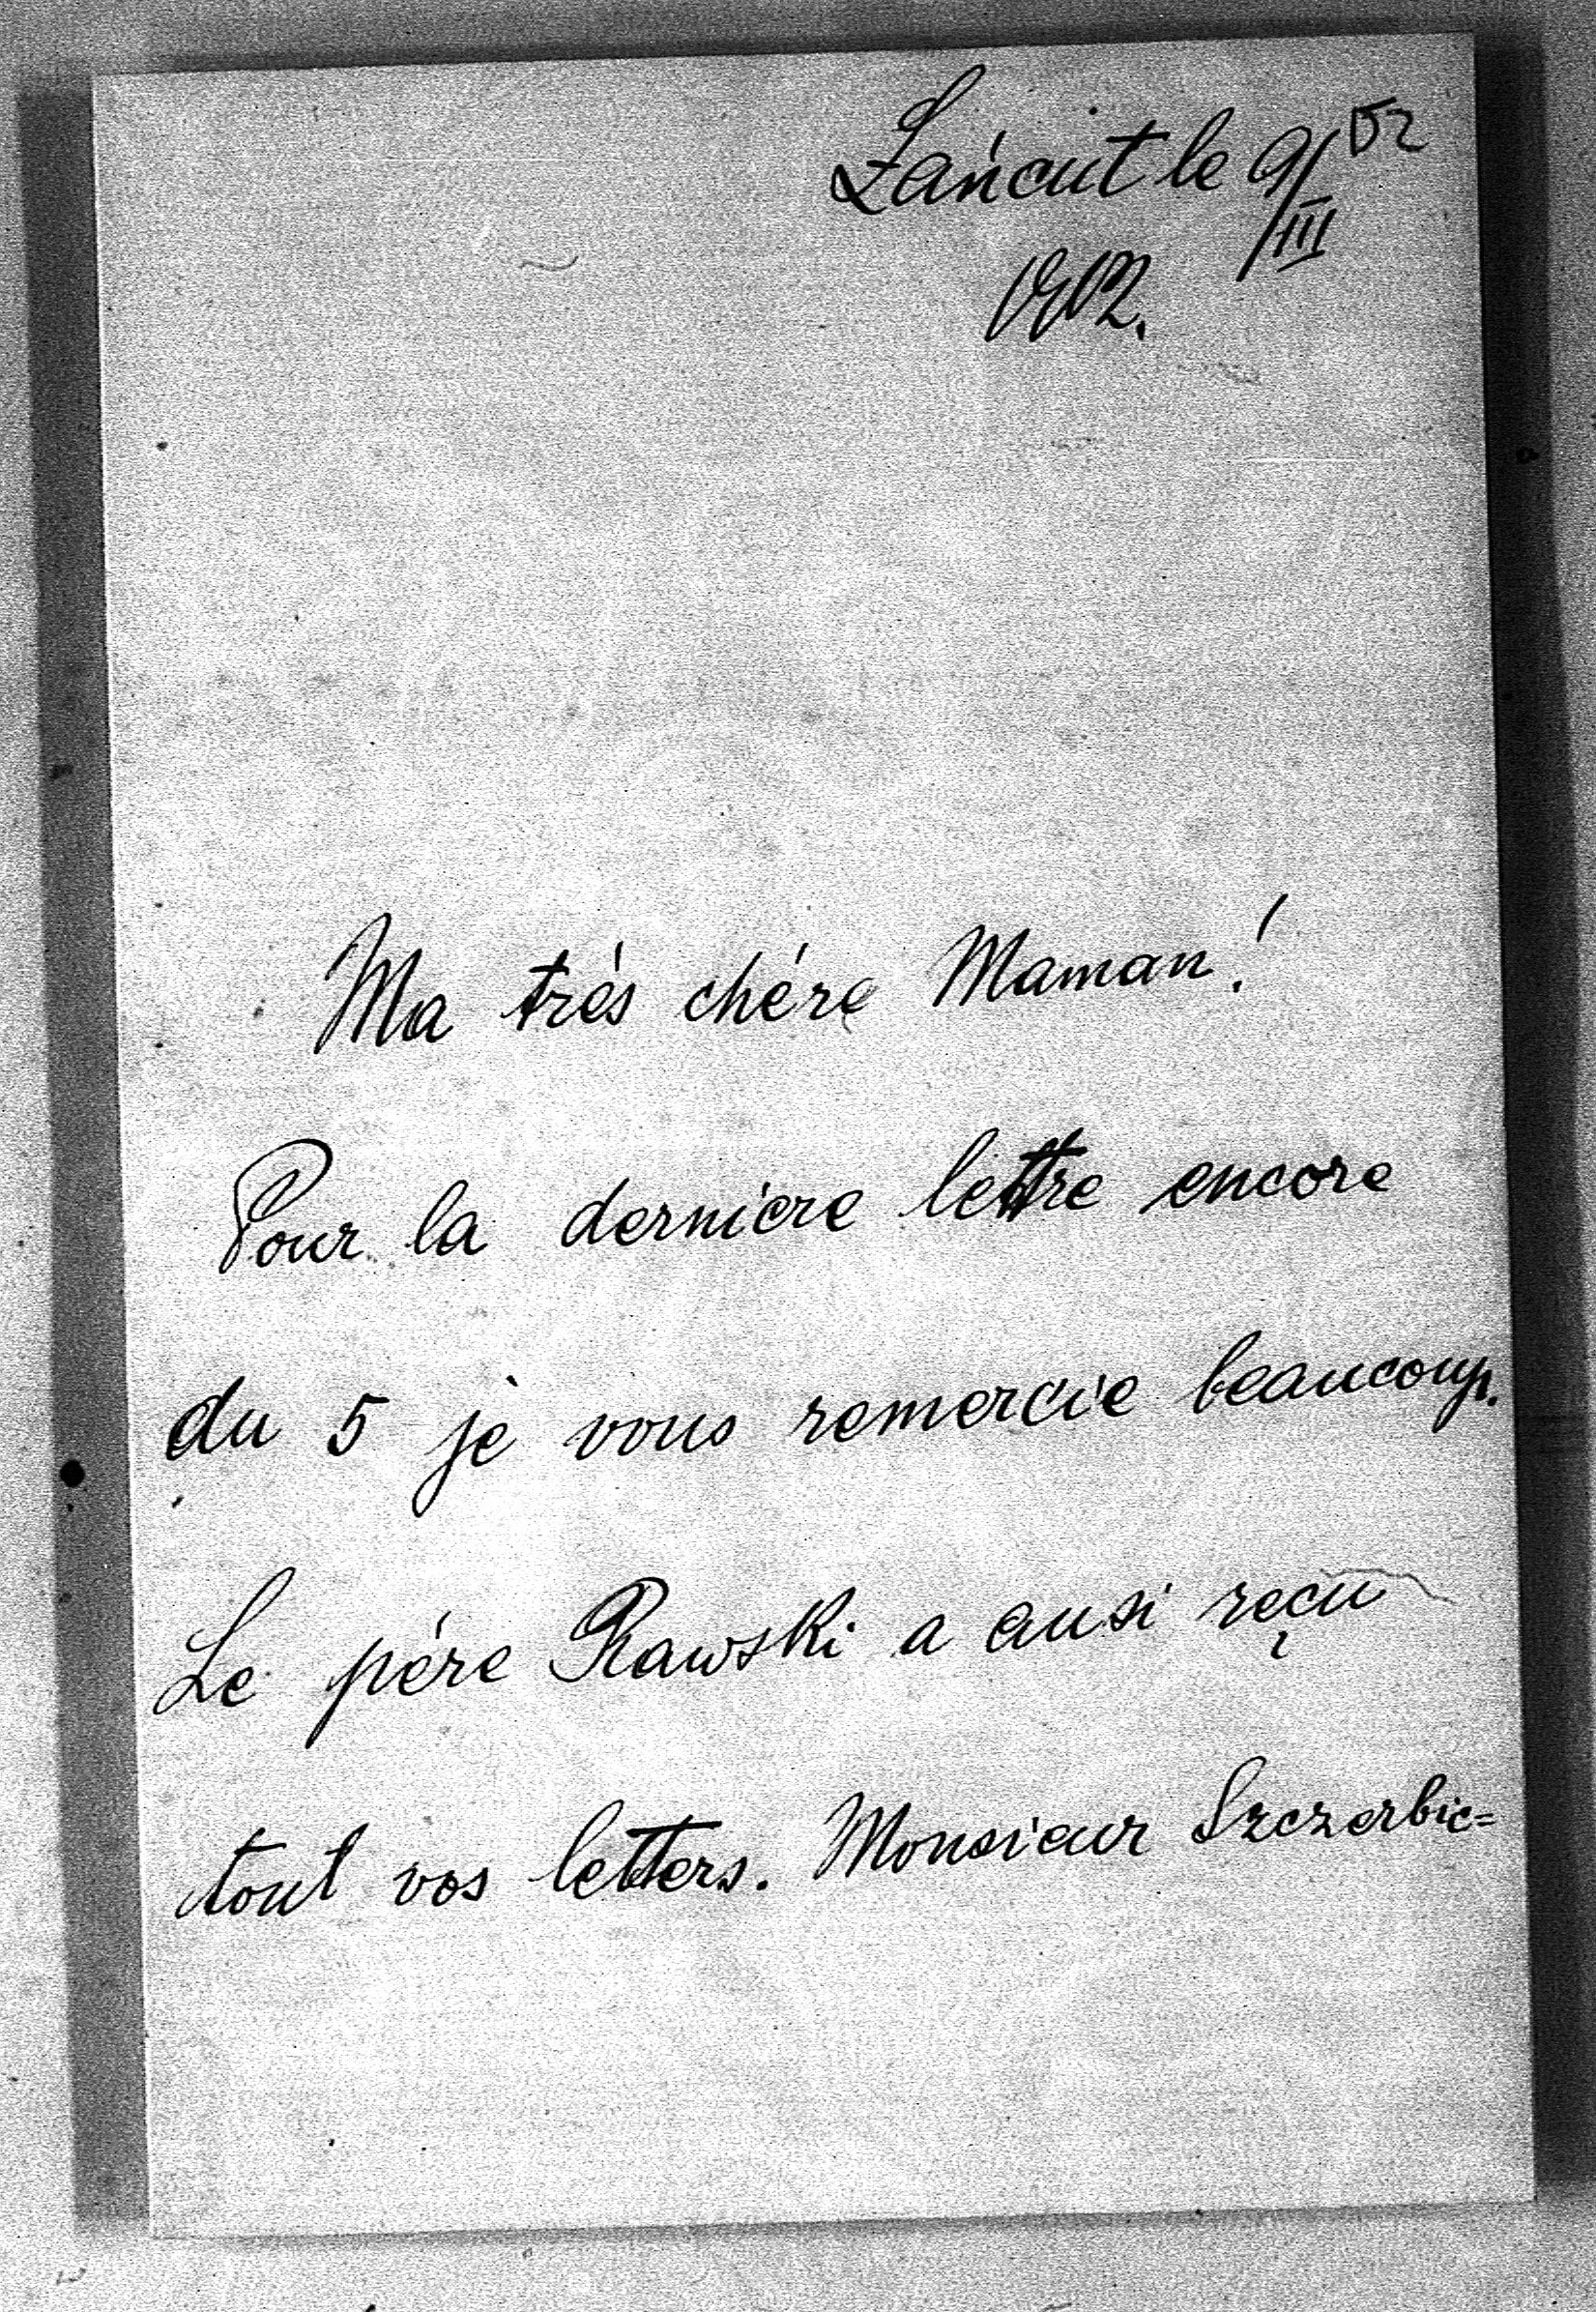 Łańcut le 9/III
1912.
Ma trés chére Maman!
Pour la derniere lettre encore
du 5 je vous remercie beaucoup.
Le pére Rawski a ausi reçu
tout vos letters. Monsieur Szczerbic=